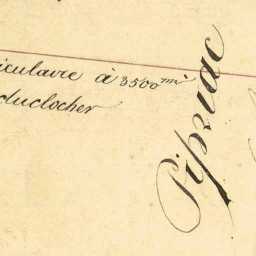 iculaire à 3500 m
du clocher
Pipriac